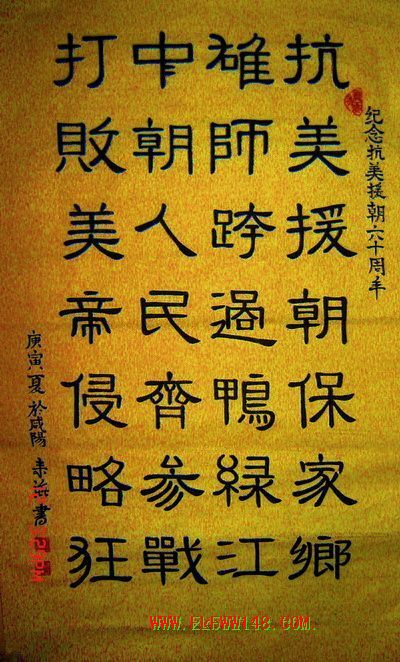 纪念抗美援朝六十周年
抗美援朝保家鄉
雄師跨過鴨緑江
中朝人民齊参戰
打敗美帝侵略狂
庚寅夏於咸陽 書